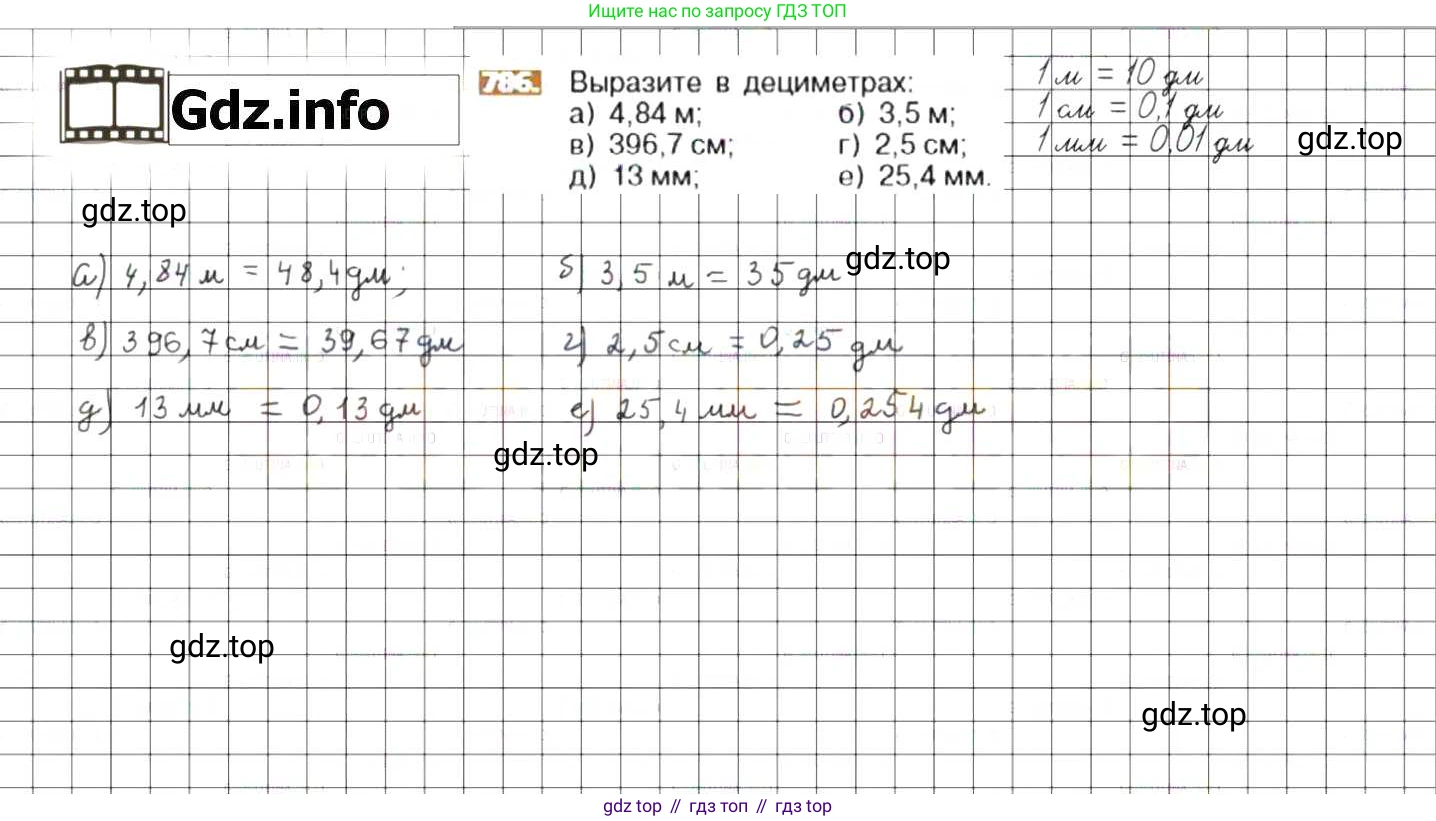 Ищите нас по запросу ГДЗ ТОП
Gdz.info
786. Выразите в дециметрах:
а) 4,84 м; б) 3,5 м;
в) 396,7 см; г) 2,5 см;
д) 13 мм; е) 25,4 мм.
1 м = 10 дм
1 см = 0,1 дм
1 мм = 0,01 дм
gdz.top
gdz.top
а) 4,84 м = 48,4 дм; б) 3,5 м = 35 дм
gdz.top
в) 396,7 см = 39,67 дм г) 2,5 см = 0,25 дм
д) 13 мм = 0,13 дм е) 25,4 мм = 0,254 дм
gdz.top
gdz.top
gdz.top
gdz top // гдз топ // гдз top